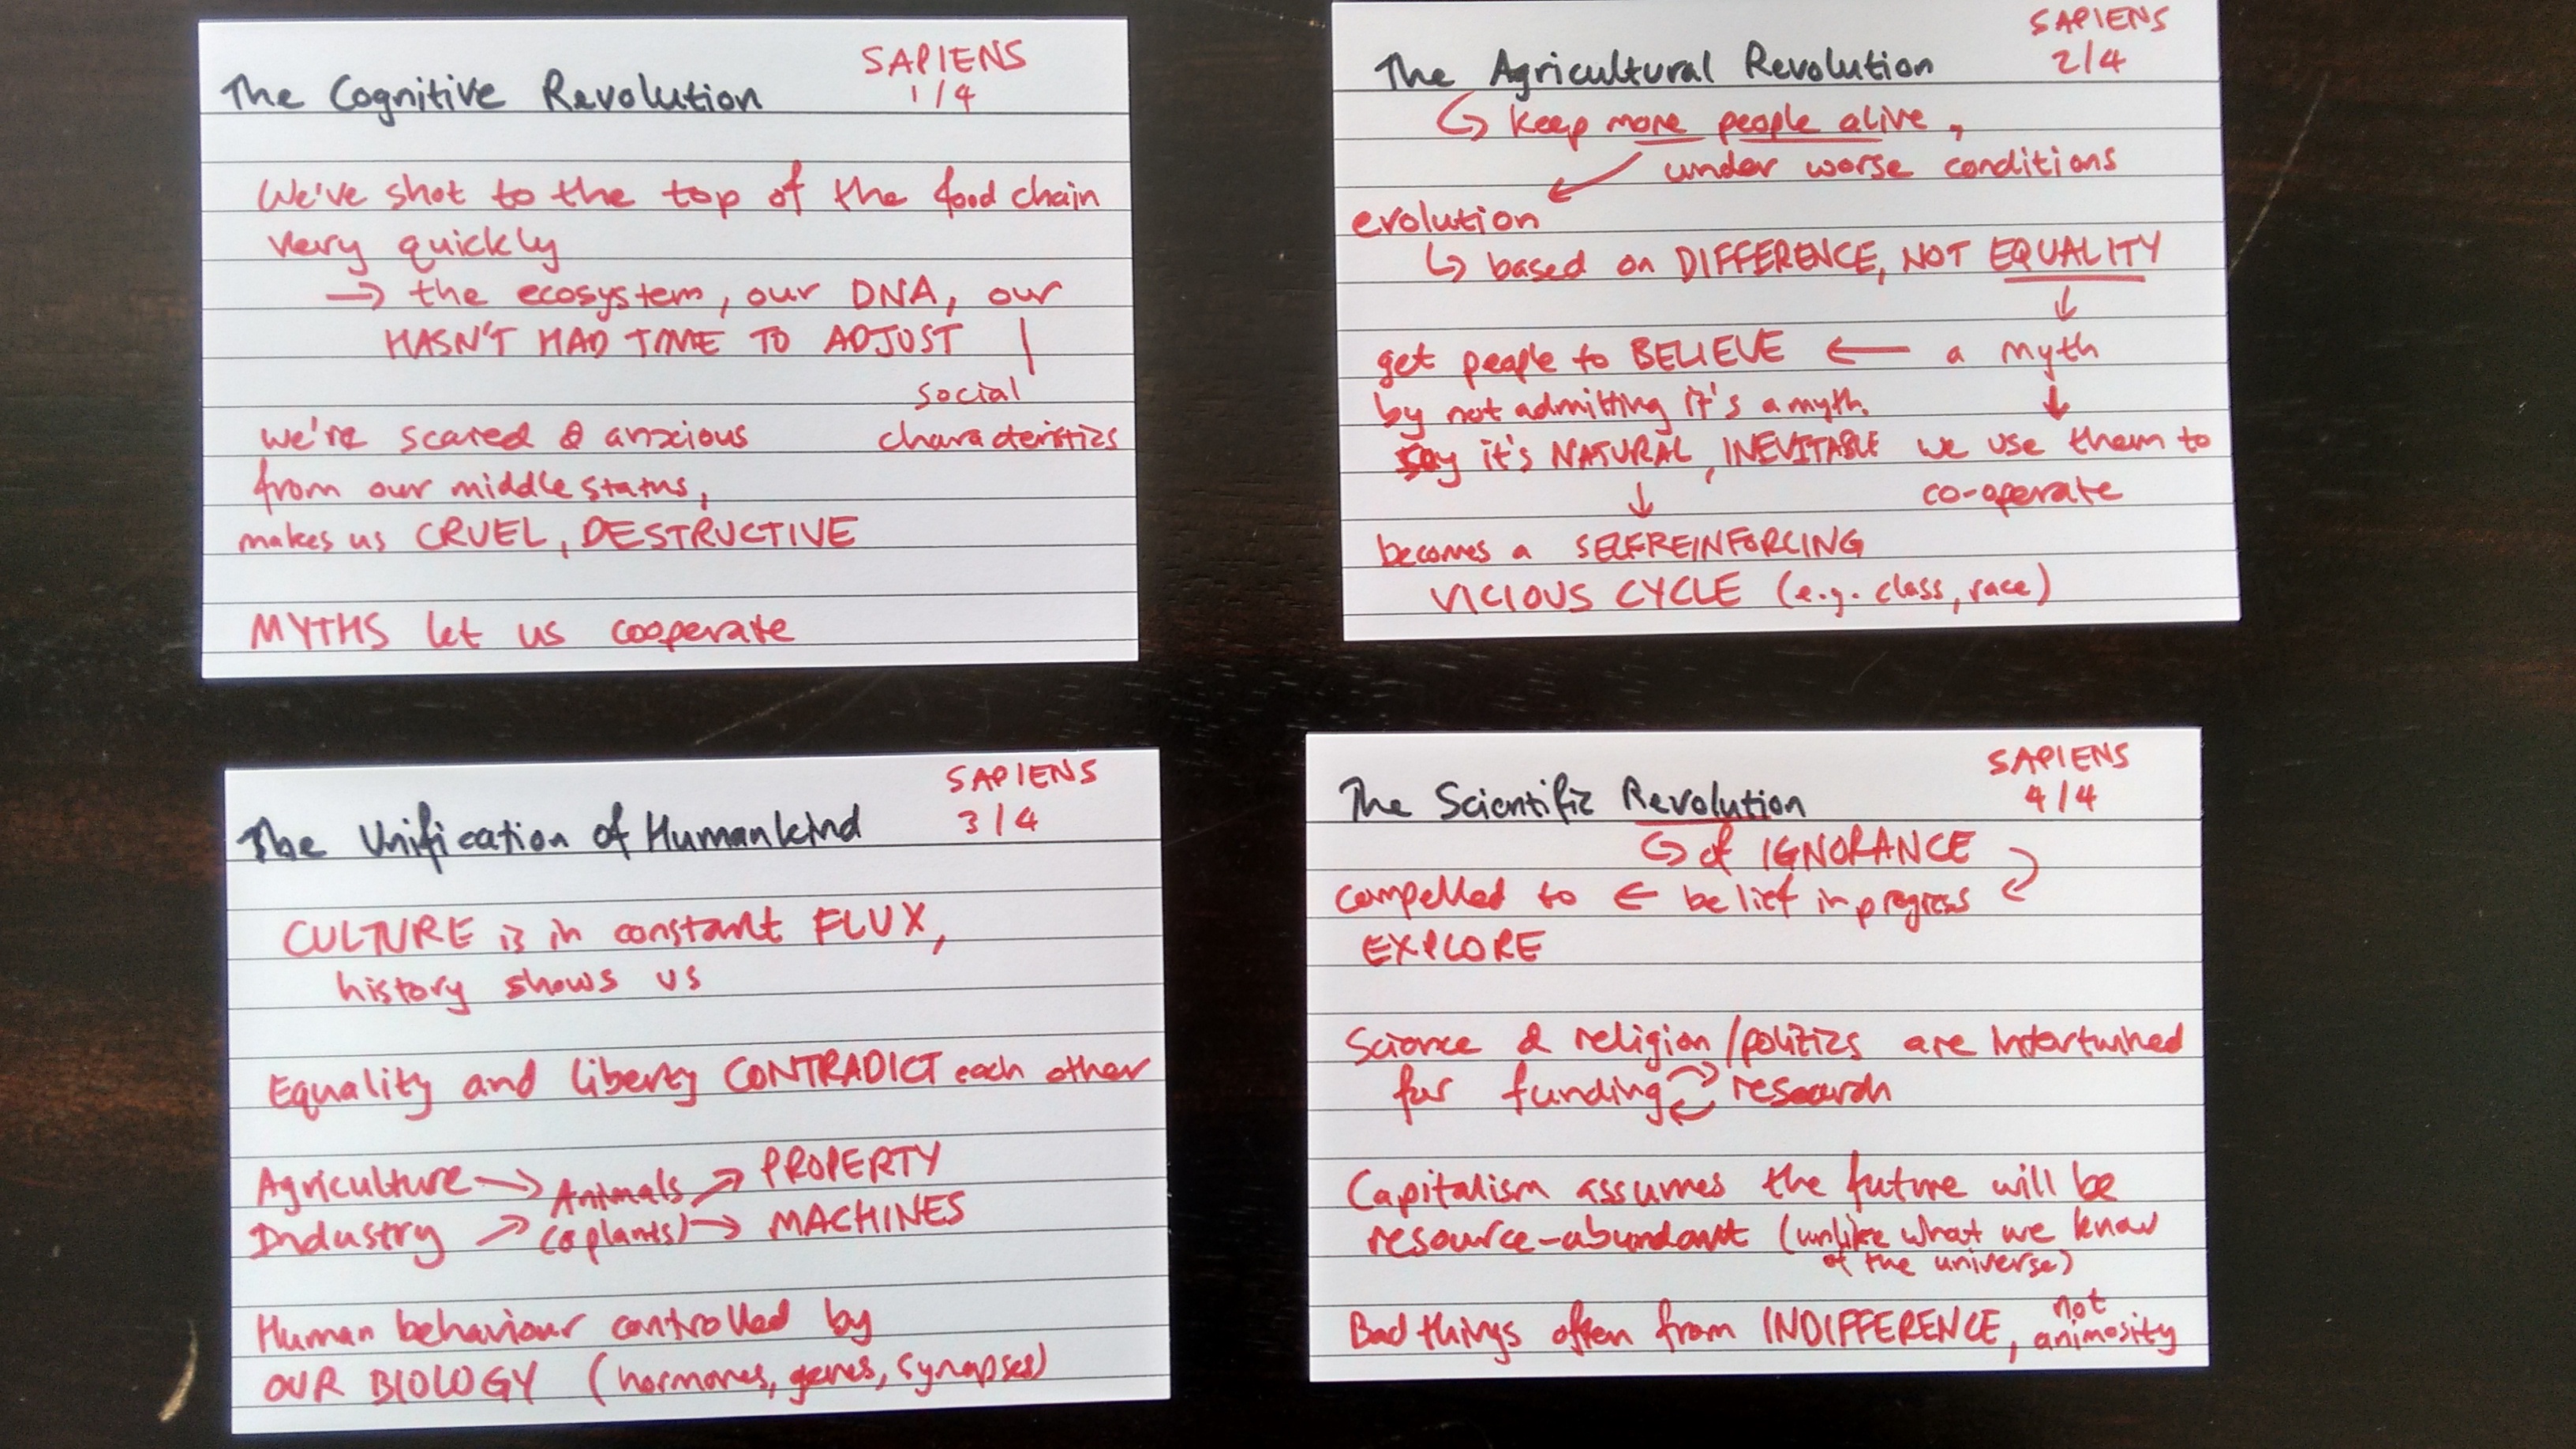 SAPIENS
The Cognitive Revolution 1/4
We've shot to the top of the food chain
very quickly
→ the ecosystem, our DNA, our
HASN'T HAD TIME TO ADJUST
social
characteristics
we're scared & anxious
from our middle status,
makes us CRUEL, DESTRUCTIVE
MYTHS let us cooperate
SAPIENS
The Agricultural Revolution 2/4
↪ keep more people alive,
under worse conditions
evolution
↪ based on DIFFERENCE, NOT EQUALITY
get people to BELIEVE ← a myth
by not admitting it's a myth.
say it's NATURAL, INEVITABLE
we use them to
co-operate
becomes a SELFREINFORCING
VICIOUS CYCLE (e.g. class, race)
SAPIENS
The Unification of Humankind 3/4
CULTURE is in constant FLUX,
history shows us
Equality and liberty CONTRADICT each other
Agriculture → Animals → PROPERTY
Industry → (& plants) → MACHINES
Human behaviour controlled by
OUR BIOLOGY (hormones, genes, synapses)
SAPIENS
The Scientific Revolution 4/4
↪ of IGNORANCE
compelled to ← belief in progress
EXPLORE
Science & religion/politics are intertwined
for funding ⇄ research
Capitalism assumes the future will be
resource-abundant (unlike what we know
of the universe)
Bad things often from INDIFFERENCE, not
animosity